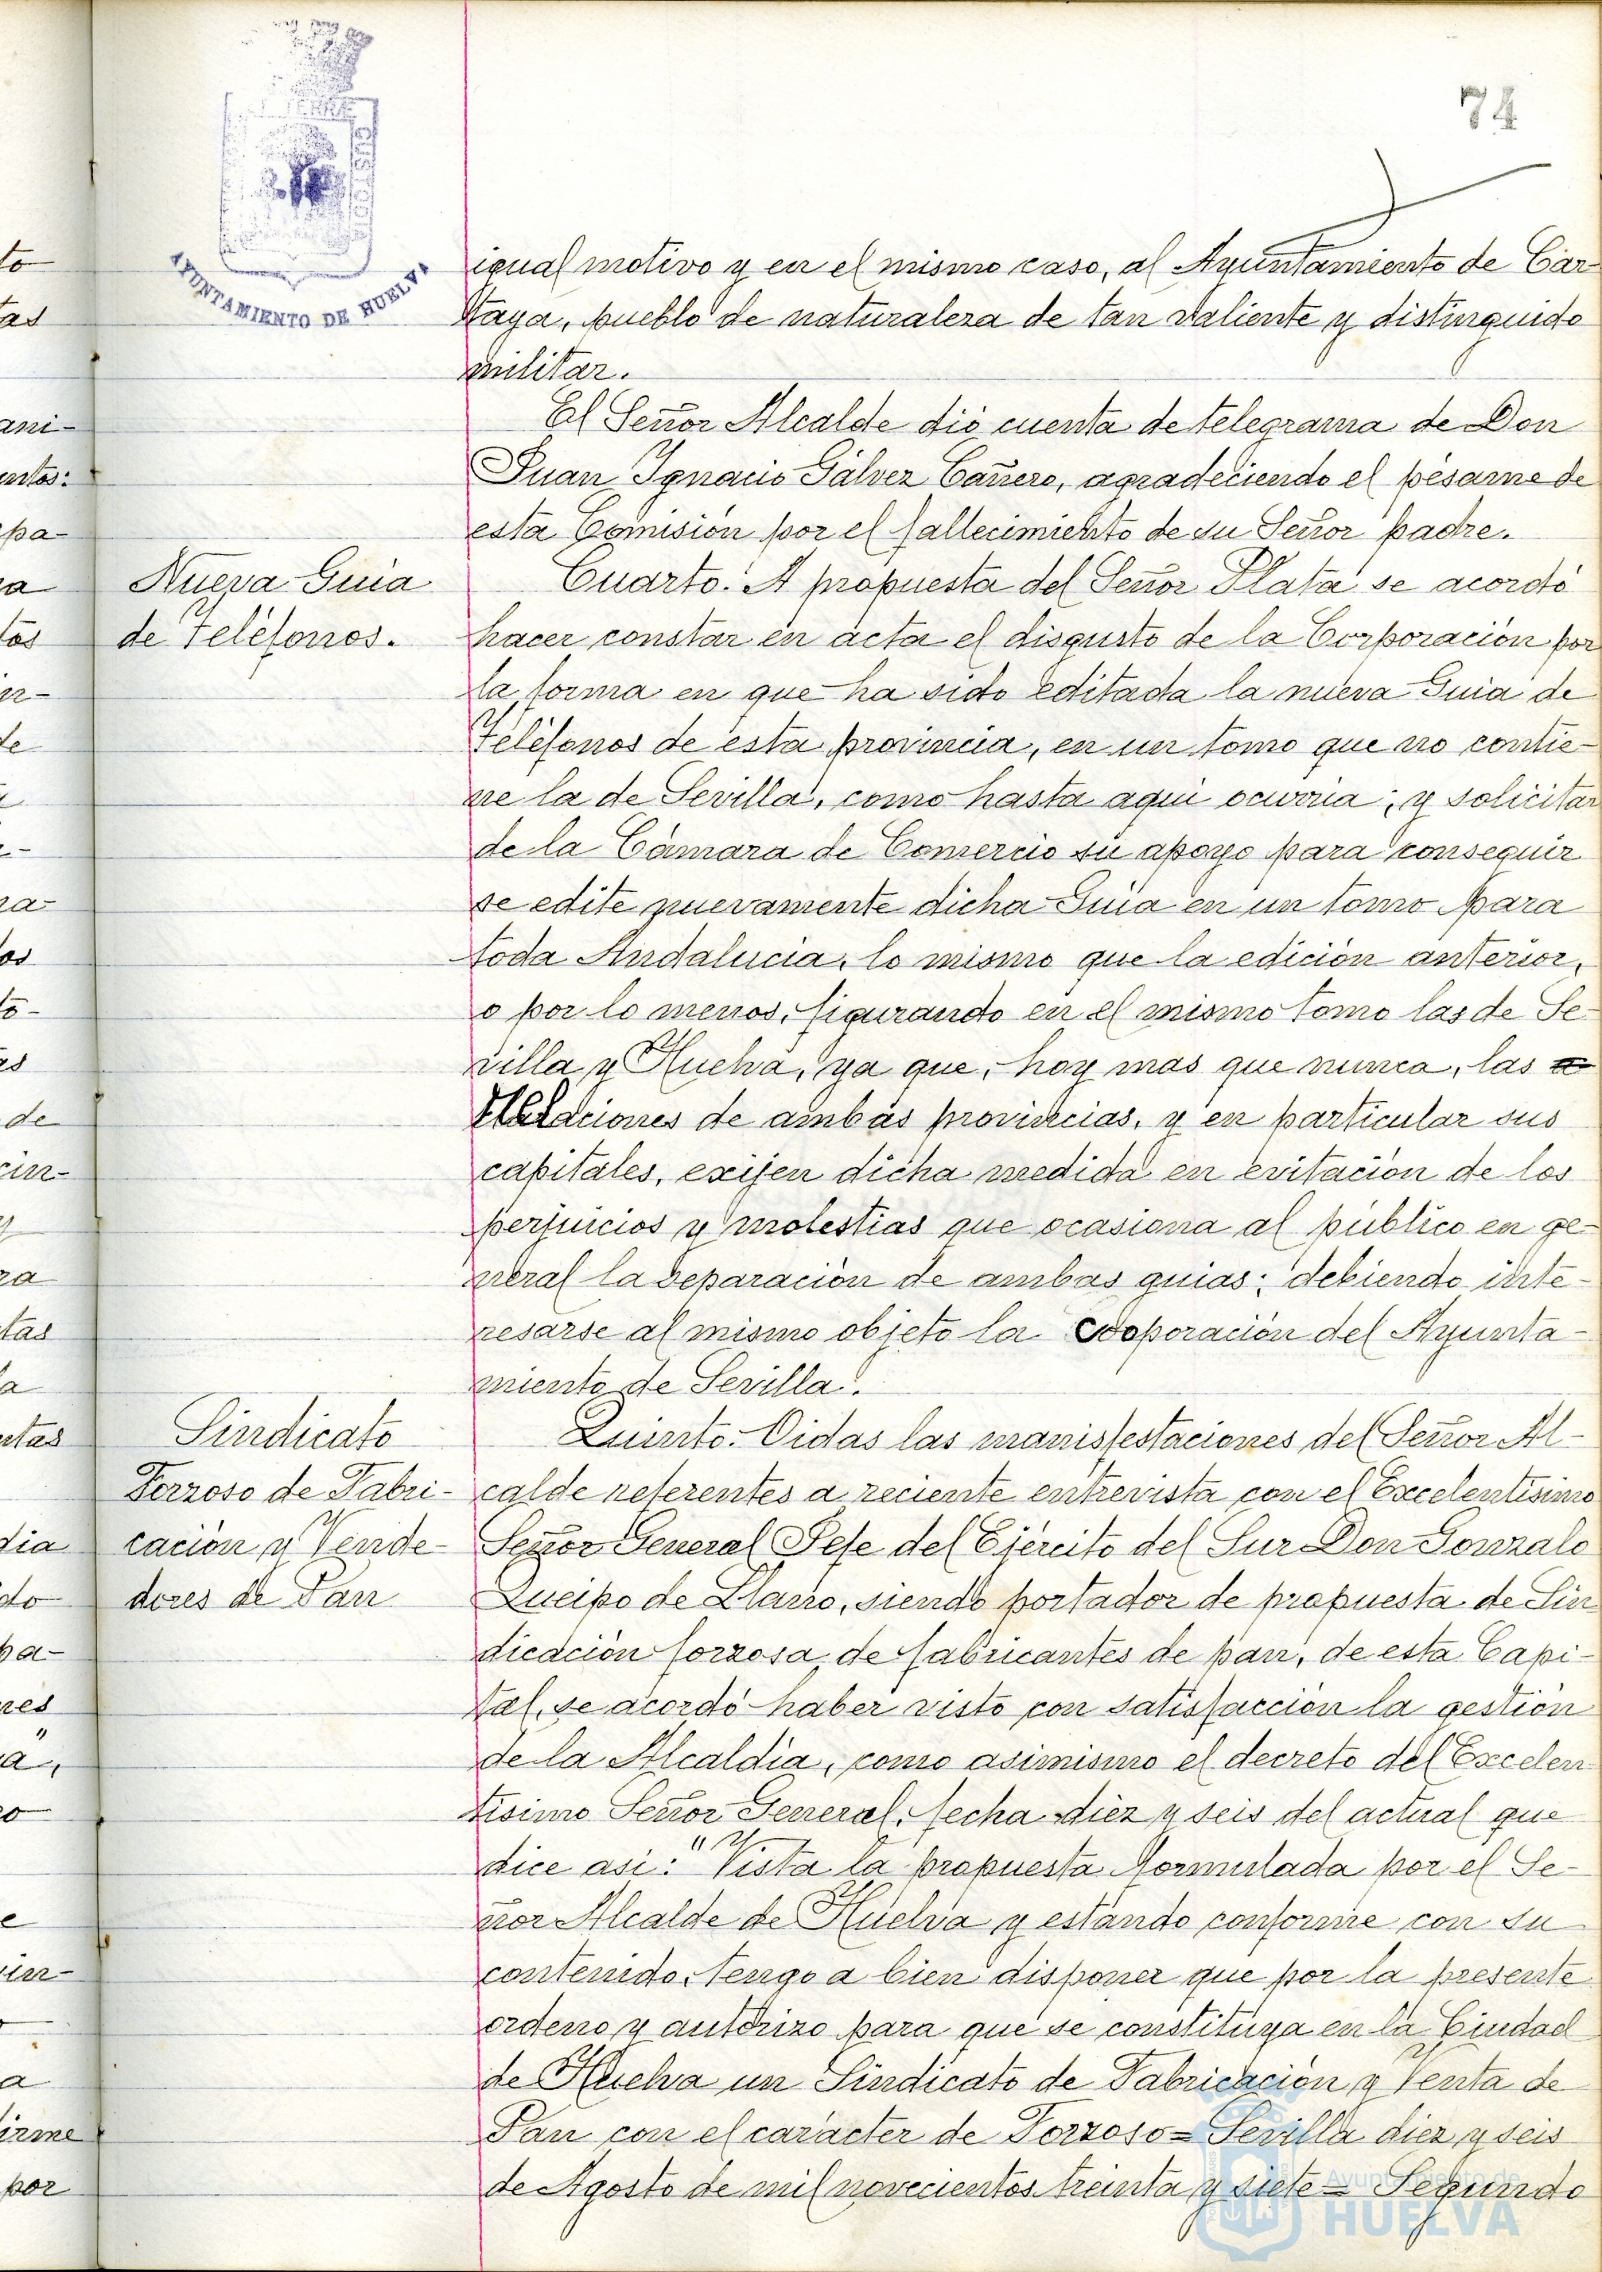 74
AYUNTAMIENTO DE HUELVA
igual motivo y en el mismo caso, al Ayuntamiento de Car-
taya, pueblo de naturaleza de tan valiente y distinguido
militar.
El Señor Alcalde dió cuenta de telegrama de Don
Juan Ignacio Gálvez Cañero, agradeciendo el pésame de
esta Comisión por el fallecimiento de su Señor padre.
Nueva Guia
de Teléfonos.
Cuarto. A propuesta del Señor Plata se acordó
hacer constar en acta el disgusto de la Corporación por
la forma en que ha sido editada la nueva Guia de
Teléfonos de esta provincia, en un tomo que no contie-
ne la de Sevilla, como hasta aqui ocurria; y solicitar
de la Cámara de Comercio su apoyo para conseguir
se edite nuevamente dicha Guia en un tomo para
toda Andalucia, lo mismo que la edición anterior,
o por lo menos, figurando en el mismo tomo las de Se-
villa y Huelva, ya que, hoy mas que nunca, las
relaciones de ambas provincias, y en particular sus
capitales, exijen dicha medida en evitación de los
perjuicios y molestias que ocasiona al público en ge-
neral la separación de ambas guias; debiendo inte-
resarse al mismo objeto la cooporación del Ayunta-
miento de Sevilla.
Sindicato
Forzoso de Fabri-
cación y Vende-
dores de Pan
Quinto. Oidas las manisfestaciones del Señor Al-
calde referentes a reciente entrevista con el Excelentisimo
Señor General Jefe del Ejército del Sur Don Gonzalo
Queipo de Llano, siendo portador de propuesta de Sin-
dicación forzosa de fabricantes de pan, de esta Capi-
tal, se acordó haber visto con satisfacción la gestión
de la Alcaldia, como asimismo el decreto del Excelen-
tisimo Señor General, fecha diez y seis del actual que
dice asi: "Vista la propuesta formulada por el Se-
ñor Alcalde de Huelva y estando conforme con su
contenido, tengo a bien disponer que por la presente
ordeno y autorizo para que se constituya en la Ciudad
de Huelva un Sindicato de Fabricación y Venta de
Pan con el carácter de Forzoso = Sevilla diez y seis
de Agosto de mil novecientos treinta y siete = Segundo
Ayuntamiento de
HUELVA